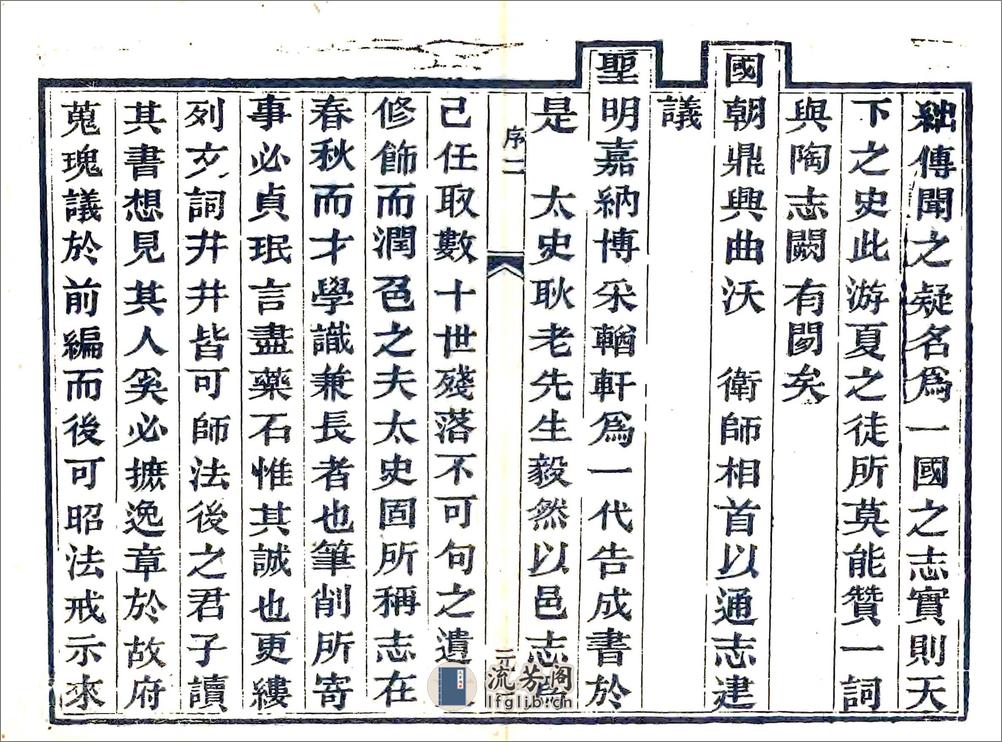 絀傳聞之疑名爲一國之志實則天
下之史此游夏之徒所莫能贊一詞
與陶志闕有閒矣
國朝鼎興曲沃 衛師相首以通志建
議
聖明嘉納博采輶軒爲一代告成書於
是 太史耿老先生毅然以邑志
序二
己任取數十世殘落不可句之遺
修飾而潤色之夫太史固所稱志在
春秋而才學識兼長者也筆削所寄
事必貞珉言盡藥石惟其誠也更縷
列文詞井井皆可師法後之君子讀
其書想見其人奚必摭逸章於故府
蒐瑰議於前編而後可昭法戒示來
流芳阁
lfglib.cn